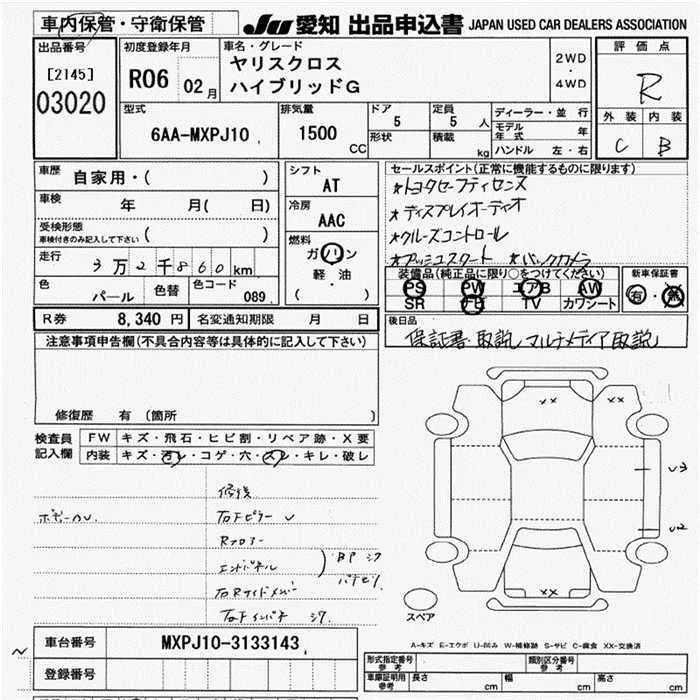 車内保管・守衛保管
JU 愛知 出品申込書 JAPAN USED CAR DEALERS ASSOCIATION
出品番号
[2145]
03020
初度登録年月
R06 02月
車名・グレード
ヤリスクロス
ハイブリッドG
2WD
・
4WD
評価点
R
外装 内装
C B
型式
6AA-MXPJ10
排気量
1500
CC
ドア
5
形状
定員
5 人
積載
kg
ディーラー・並行
モデル年式 年
ハンドル 左・右
車歴
自家用・( )
車検
年 月( 日)
受検形態
車検付きのみ記入して下さい ( )
走行
3万2千860km
色
パール
色替
色コード
089
シフト
AT
冷房
AAC
燃料
ガソリン
軽・油
( )
セールスポイント(正常に機能するものに限ります)
★トヨタセーフティセンス
★ディスプレイオーディオ
★クルーズコントロール
★プッシュスタート ★バックカメラ
装備品(純正品に限り○をつけてください)
PS PW エアB AW
SR ナビ TV カワシート
新車保証書
有・無
後日品
保証書 取説 マルチメディア取説
R券 8,340 円
名変通知期限 月 日
注意事項申告欄(不具合内容等は具体的に記入して下さい)
修復歴 有 〔箇所 〕
検査員
記入欄
FW キズ・飛石・ヒビ割・リペア跡・X要
内装 キズ・汚レ・コゲ・穴・スレ・キレ・破レ
修復
右Fピラー
Rフロアー
エンドパネル
右Rサイドメンバー
右Fインパネ
BP
XX XX
XX
U3
U2
スペア
A-キズ E-エクボ U-凹み W-補修跡 S-サビ C-腐食 XX-交換済
車台番号 MXPJ10-3133143
登録番号
形式指定番号
参考
類別区分番号
参考
車庫証明用
参考
長さ cm 幅 cm 高さ cm